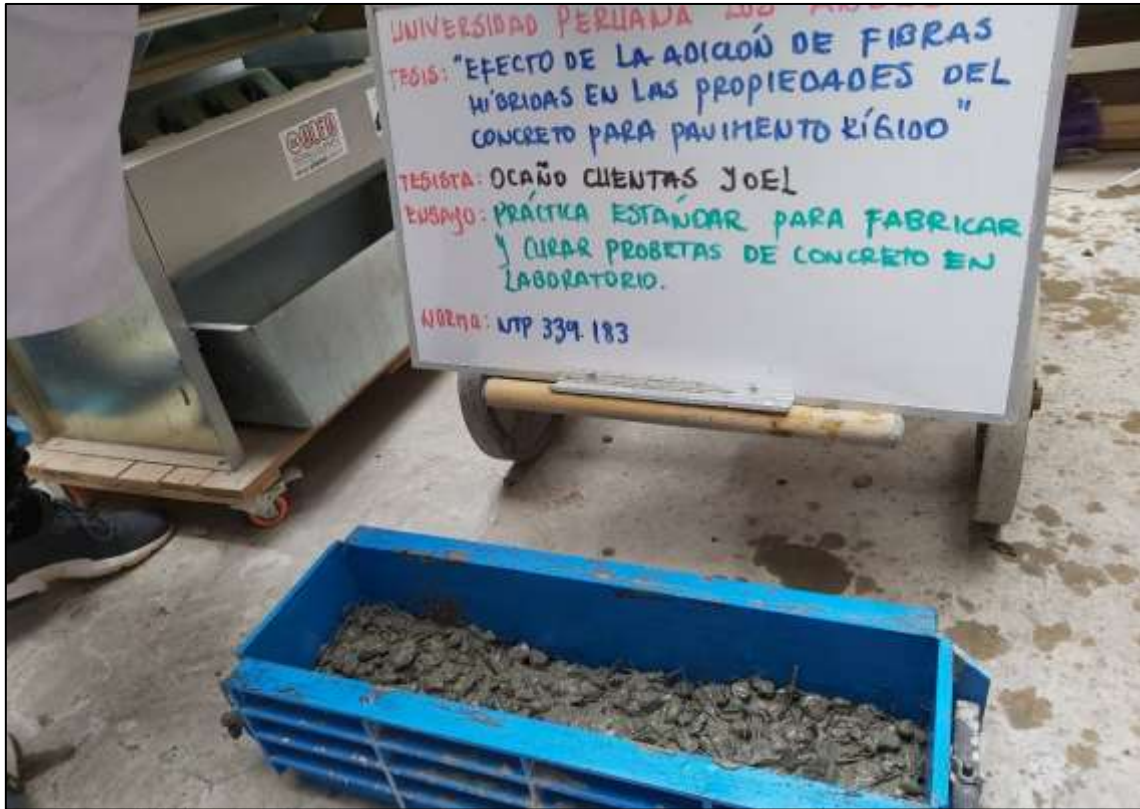 UNIVERSIDAD PERUANA LOS
TESIS: "EFECTO DE LA ADICIÓN DE FIBRAS
HÍBRIDAS EN LAS PROPIEDADES DEL
CONCRETO PARA PAVIMENTO RÍGIDO"
TESISTA: OCAÑO CUENTAS JOEL
ENSAYO: PRÁCTICA ESTAÑDAR PARA FABRICAR
Y CURAR PROBETAS DE CONCRETO EN
LABORATORIO.
NORMA: NTP 339.183